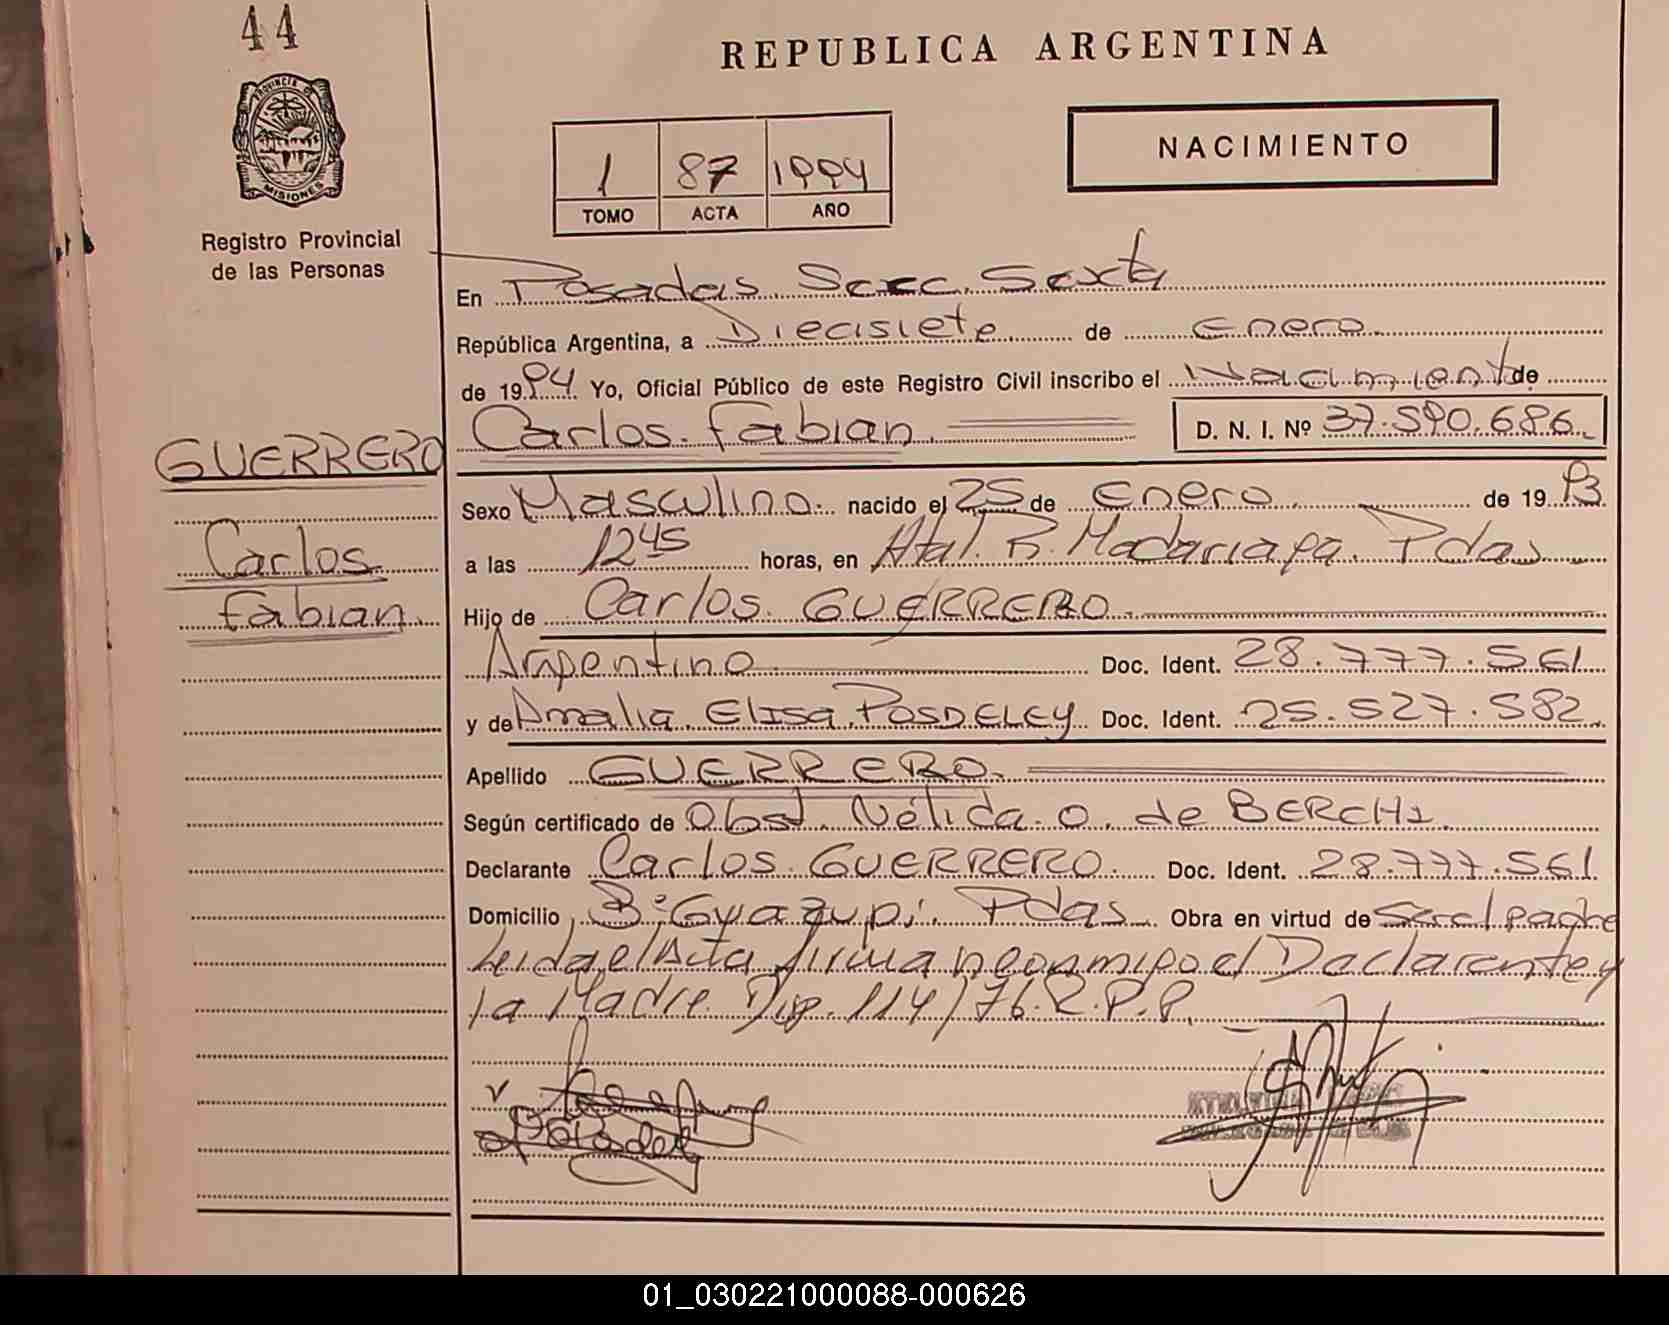 44
REPUBLICA ARGENTINA
PROVINCIA DE
MISIONES
Registro Provincial
de las Personas
1 87 1994
TOMO ACTA AÑO
NACIMIENTO
En Posadas Secc. Sexta
República Argentina, a Diecisiete de Enero
de 1994 Yo, Oficial Público de este Registro Civil inscribo el Nacimiento de
Carlos Fabian D. N. I. Nº 37.590.686
GUERRERO
Carlos
Fabian
Sexo Masculino nacido el 25 de Enero de 1993
a las 12 45 horas, en Htal. R. Madariaga Pdas
Hijo de Carlos GUERRERO
Argentino Doc. Ident. 28.777.561
y de Amalia Elisa POSDELEY Doc. Ident. 25.527.582
Apellido GUERRERO
Según certificado de Obst. Nélida O. de BERCHI
Declarante Carlos GUERRERO Doc. Ident. 28.777.561
Domicilio Bº Gyazupi Pdas Obra en virtud de
Leida el Acta firma el Declarante y
la Madre Disp. 114/76.R.P.P.
01_030221000088-000626